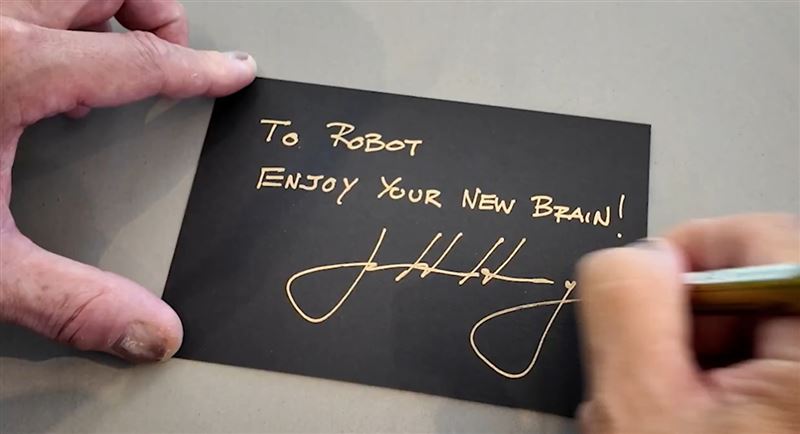 To ROBOT
ENJOY YOUR NEW BRAIN!